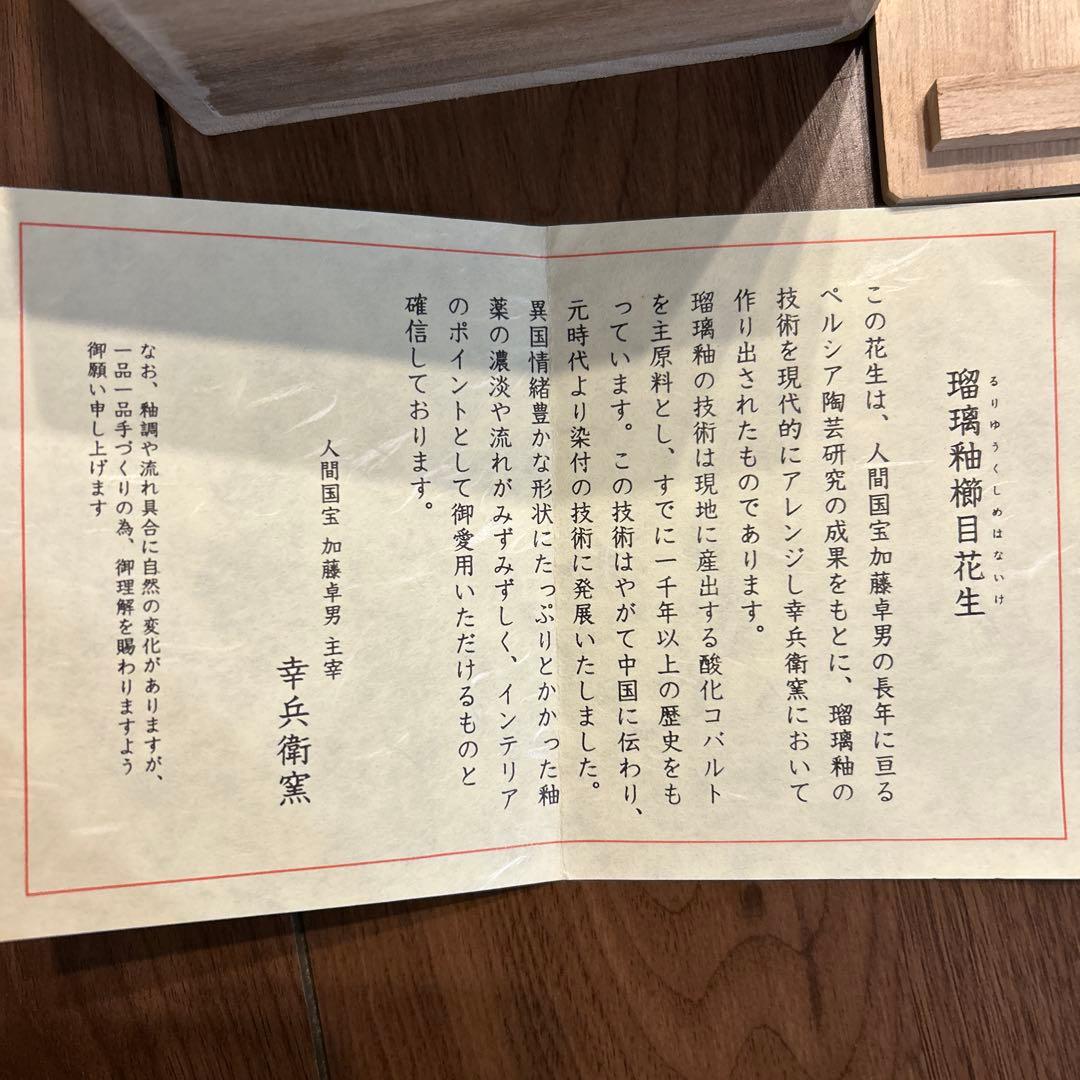 瑠璃釉櫛目花生
るりゆうくしめはないけ
この花生は、人間国宝加藤卓男の長年に亘る
ペルシア陶芸研究の成果をもとに、瑠璃釉の
技術を現代的にアレンジし幸兵衛窯において
作り出されたものであります。
瑠璃釉の技術は現地に産出する酸化コバルト
を主原料とし、すでに一千年以上の歴史をも
っています。この技術はやがて中国に伝わり、
元時代より染付の技術に発展いたしました。
異国情緒豊かな形状にたっぷりとかかった釉
薬の濃淡や流れがみずみずしく、インテリア
のポイントとして御愛用いただけるものと
確信しております。
人間国宝 加藤卓男 主宰
幸兵衛窯
なお、釉調や流れ具合に自然の変化がありますが、
一品一品手づくりの為、御理解を賜わりますよう
御願い申し上げます